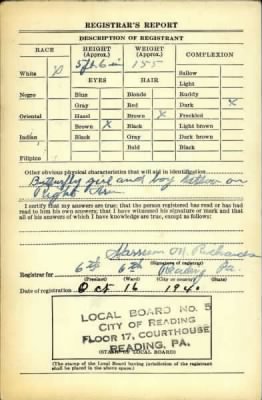 REGISTRAR'S REPORT
DESCRIPTION OF REGISTRANT
RACE HEIGHT (Approx.) WEIGHT (Approx.) COMPLEXION
5 ft 6 in 155
White X Sallow
EYES HAIR Light
Negro Blue Blonde Ruddy
Gray Red Dark X
Oriental Hazel Brown X Freckled
Brown X Black Light brown
Indian Black Gray Dark brown
Bald Black
Filipino
Other obvious physical characteristics that will aid in identification
Butterfly girl and boy tattoo on
Right Arm
I certify that my answers are true; that the person registered has read or has
had read to him his own answers; that I have witnessed his signature or mark and that
all of his answers of which I have knowledge are true, except as follows:
Harrison M. Richards
(Signature of registrar)
Registrar for 6th 6th Reading Pa.
(Precinct) (Ward) (City or county)
Date of registration Oct 16 1940
LOCAL BOARD NO. 5
CITY OF READING
FLOOR 17, COURTHOUSE
READING, PA.
(STAMP OF LOCAL BOARD)
(The stamp of the Local Board having jurisdiction of the registrant
shall be placed in the above space.)